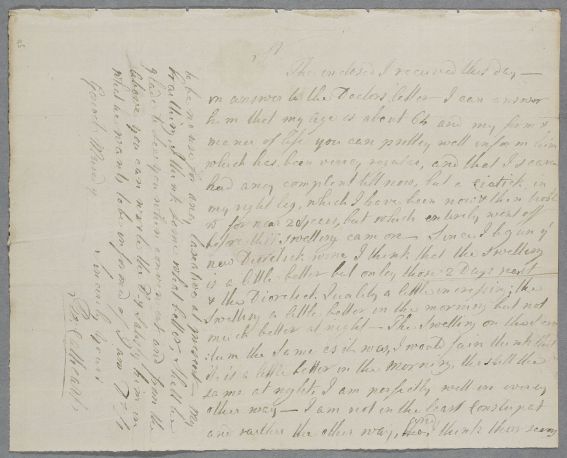 Sir
The enclosed I received this day —
in answer to the Doctors letter I can answer
him that my age is about 64 and my form &
maner of life you can prettey well inform him
which has been verey regular, and that I scarce
had aney complent till now, but a Ciatick in
my right leg, which I have been now & then troubl
d for near 2 years, but which entirely went off
before this swelling came on — Since I begun ye
new Diuretick wine I think that the Swelling
is a little better but onley those 2 Days past
& the Diuretick quality a little incressin; the
Swelling a little better in the morning but not
much better at night — The Swelling on the
the same as it was, I woud fain think that
it is a little better in the morning, tho still the
same at night, I am perfectly well in everey
other way — I am not in the least Constupat
and rather the other way, and think ther is aney
to be no use for aney laxative at present — My
breathing I think some what better — I shall be
glade to see you when convenient and from the
above you can write the Dr & satisfy him in
what he wants to be informed I am Dr Sir
Sincerely yours
Good Munday
25